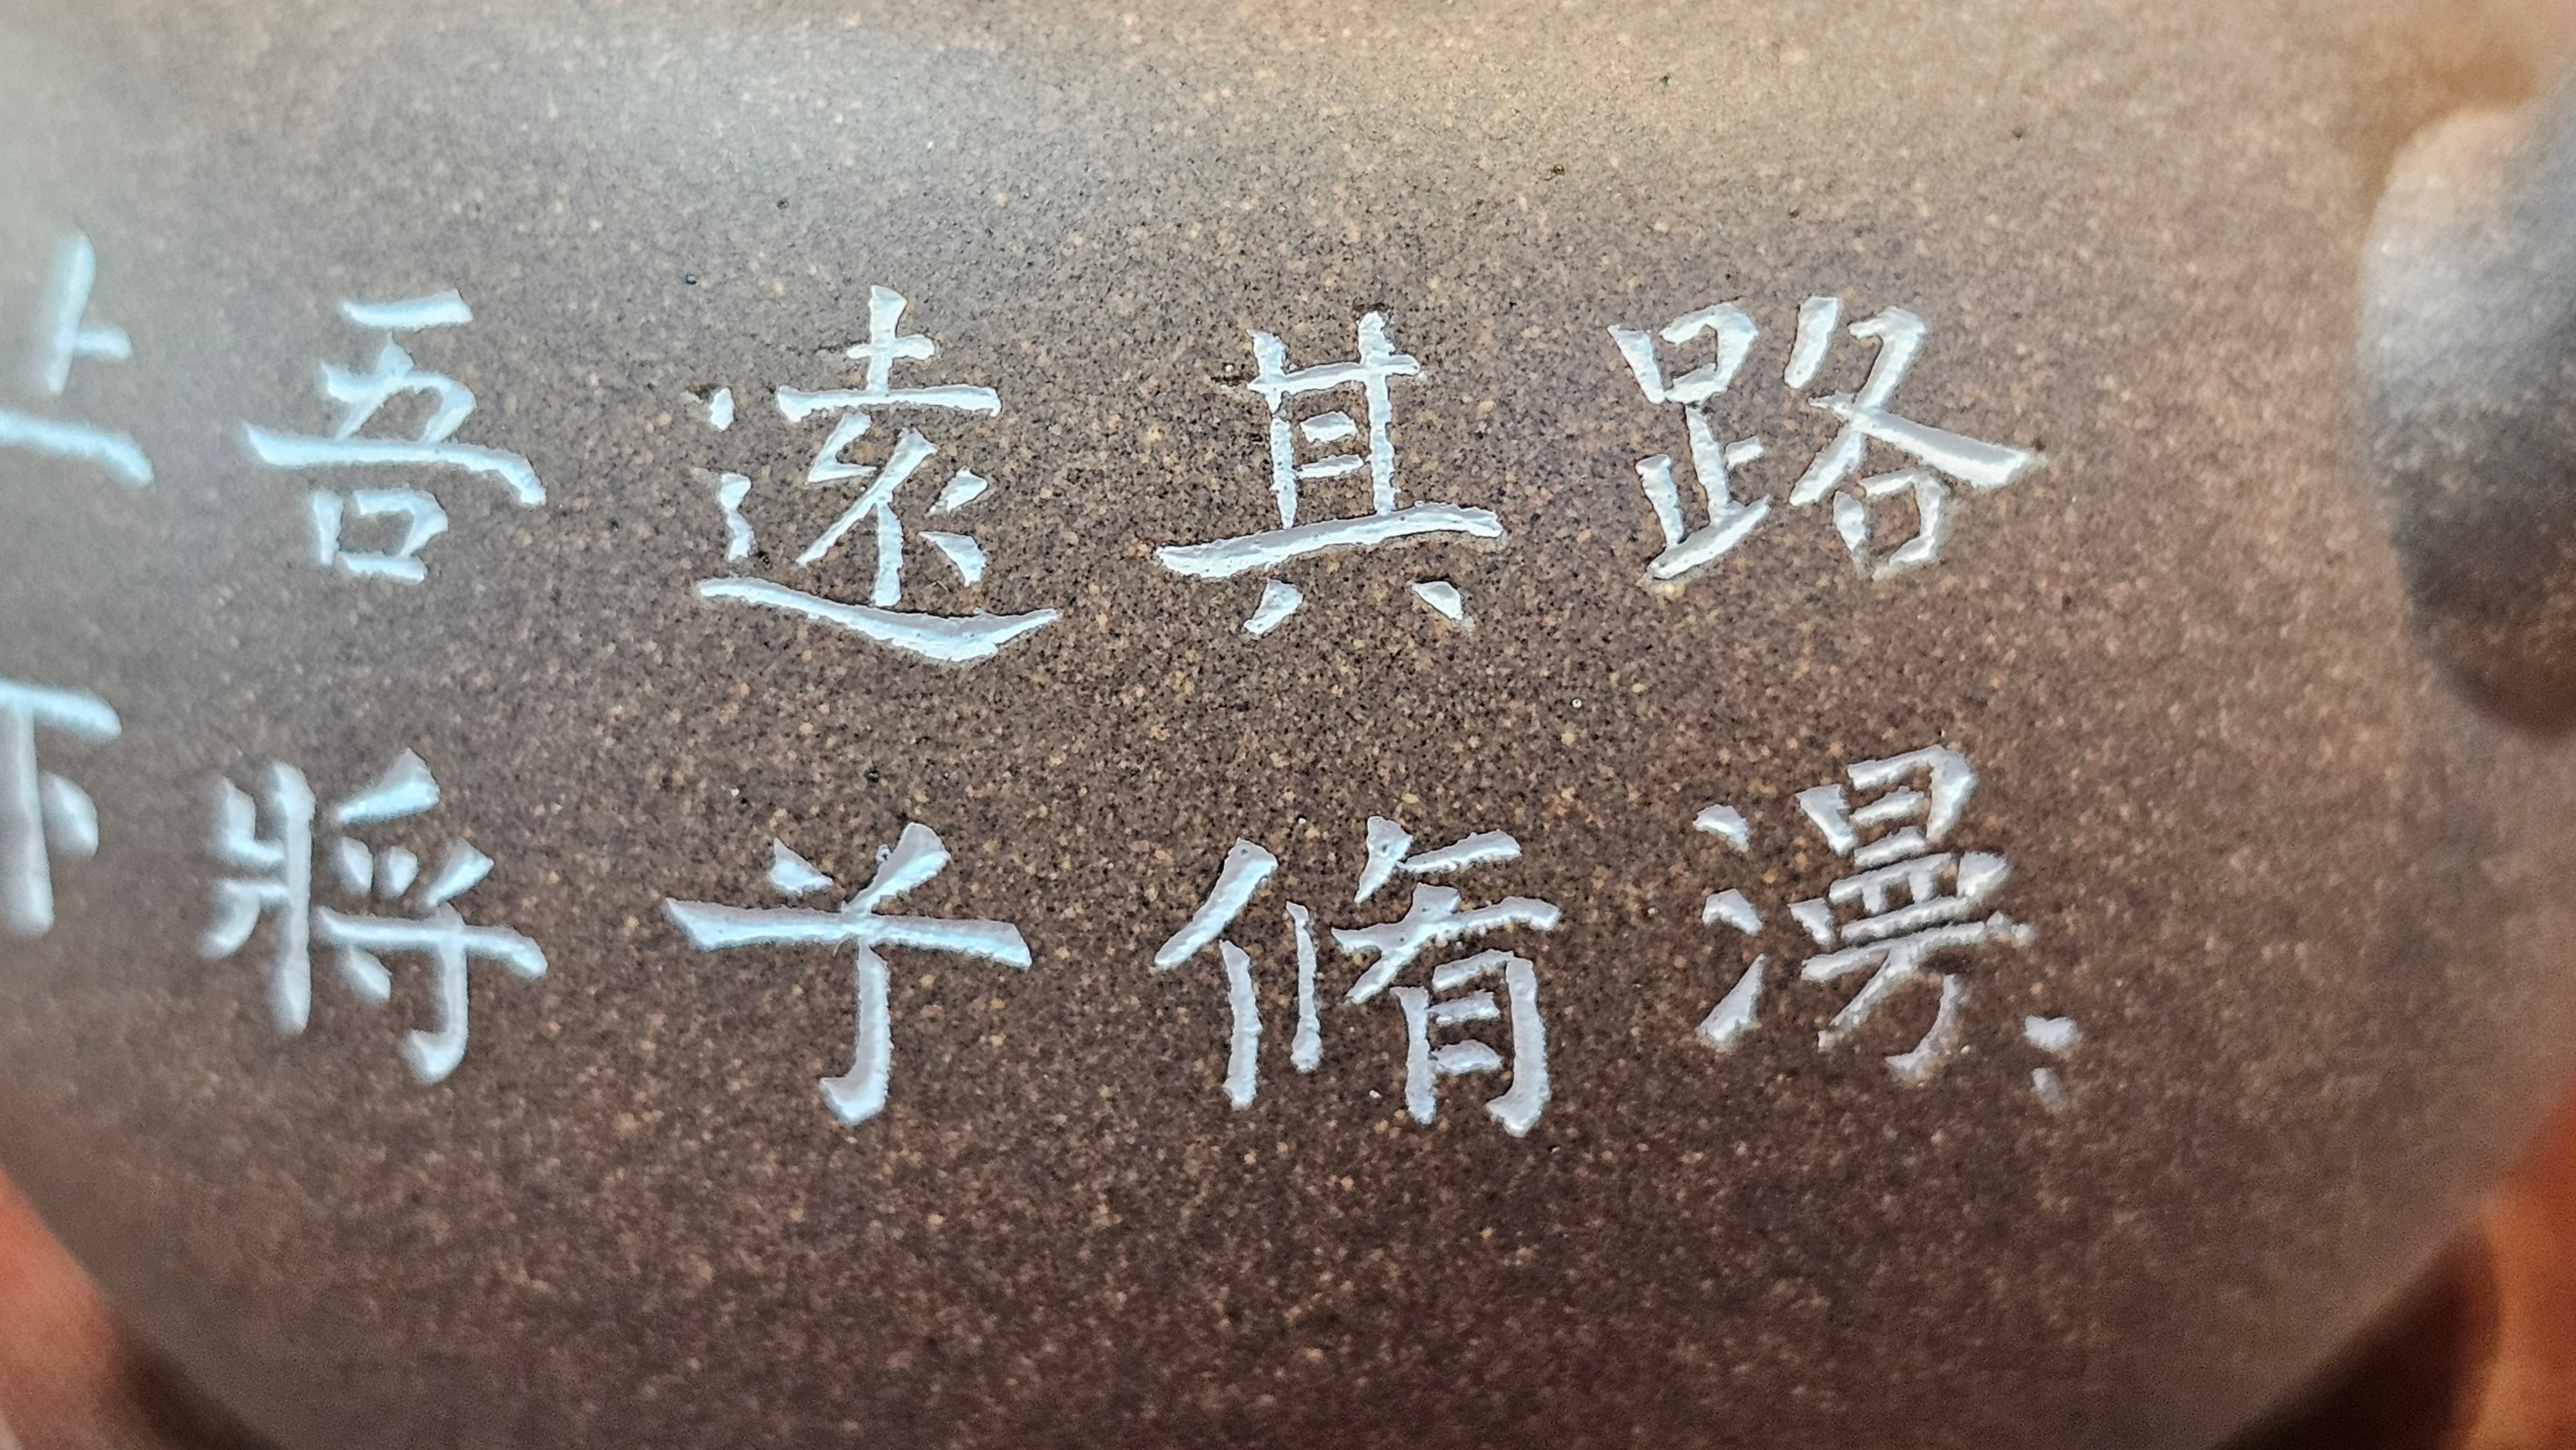 路漫〻
其脩
遠兮
吾將
上下